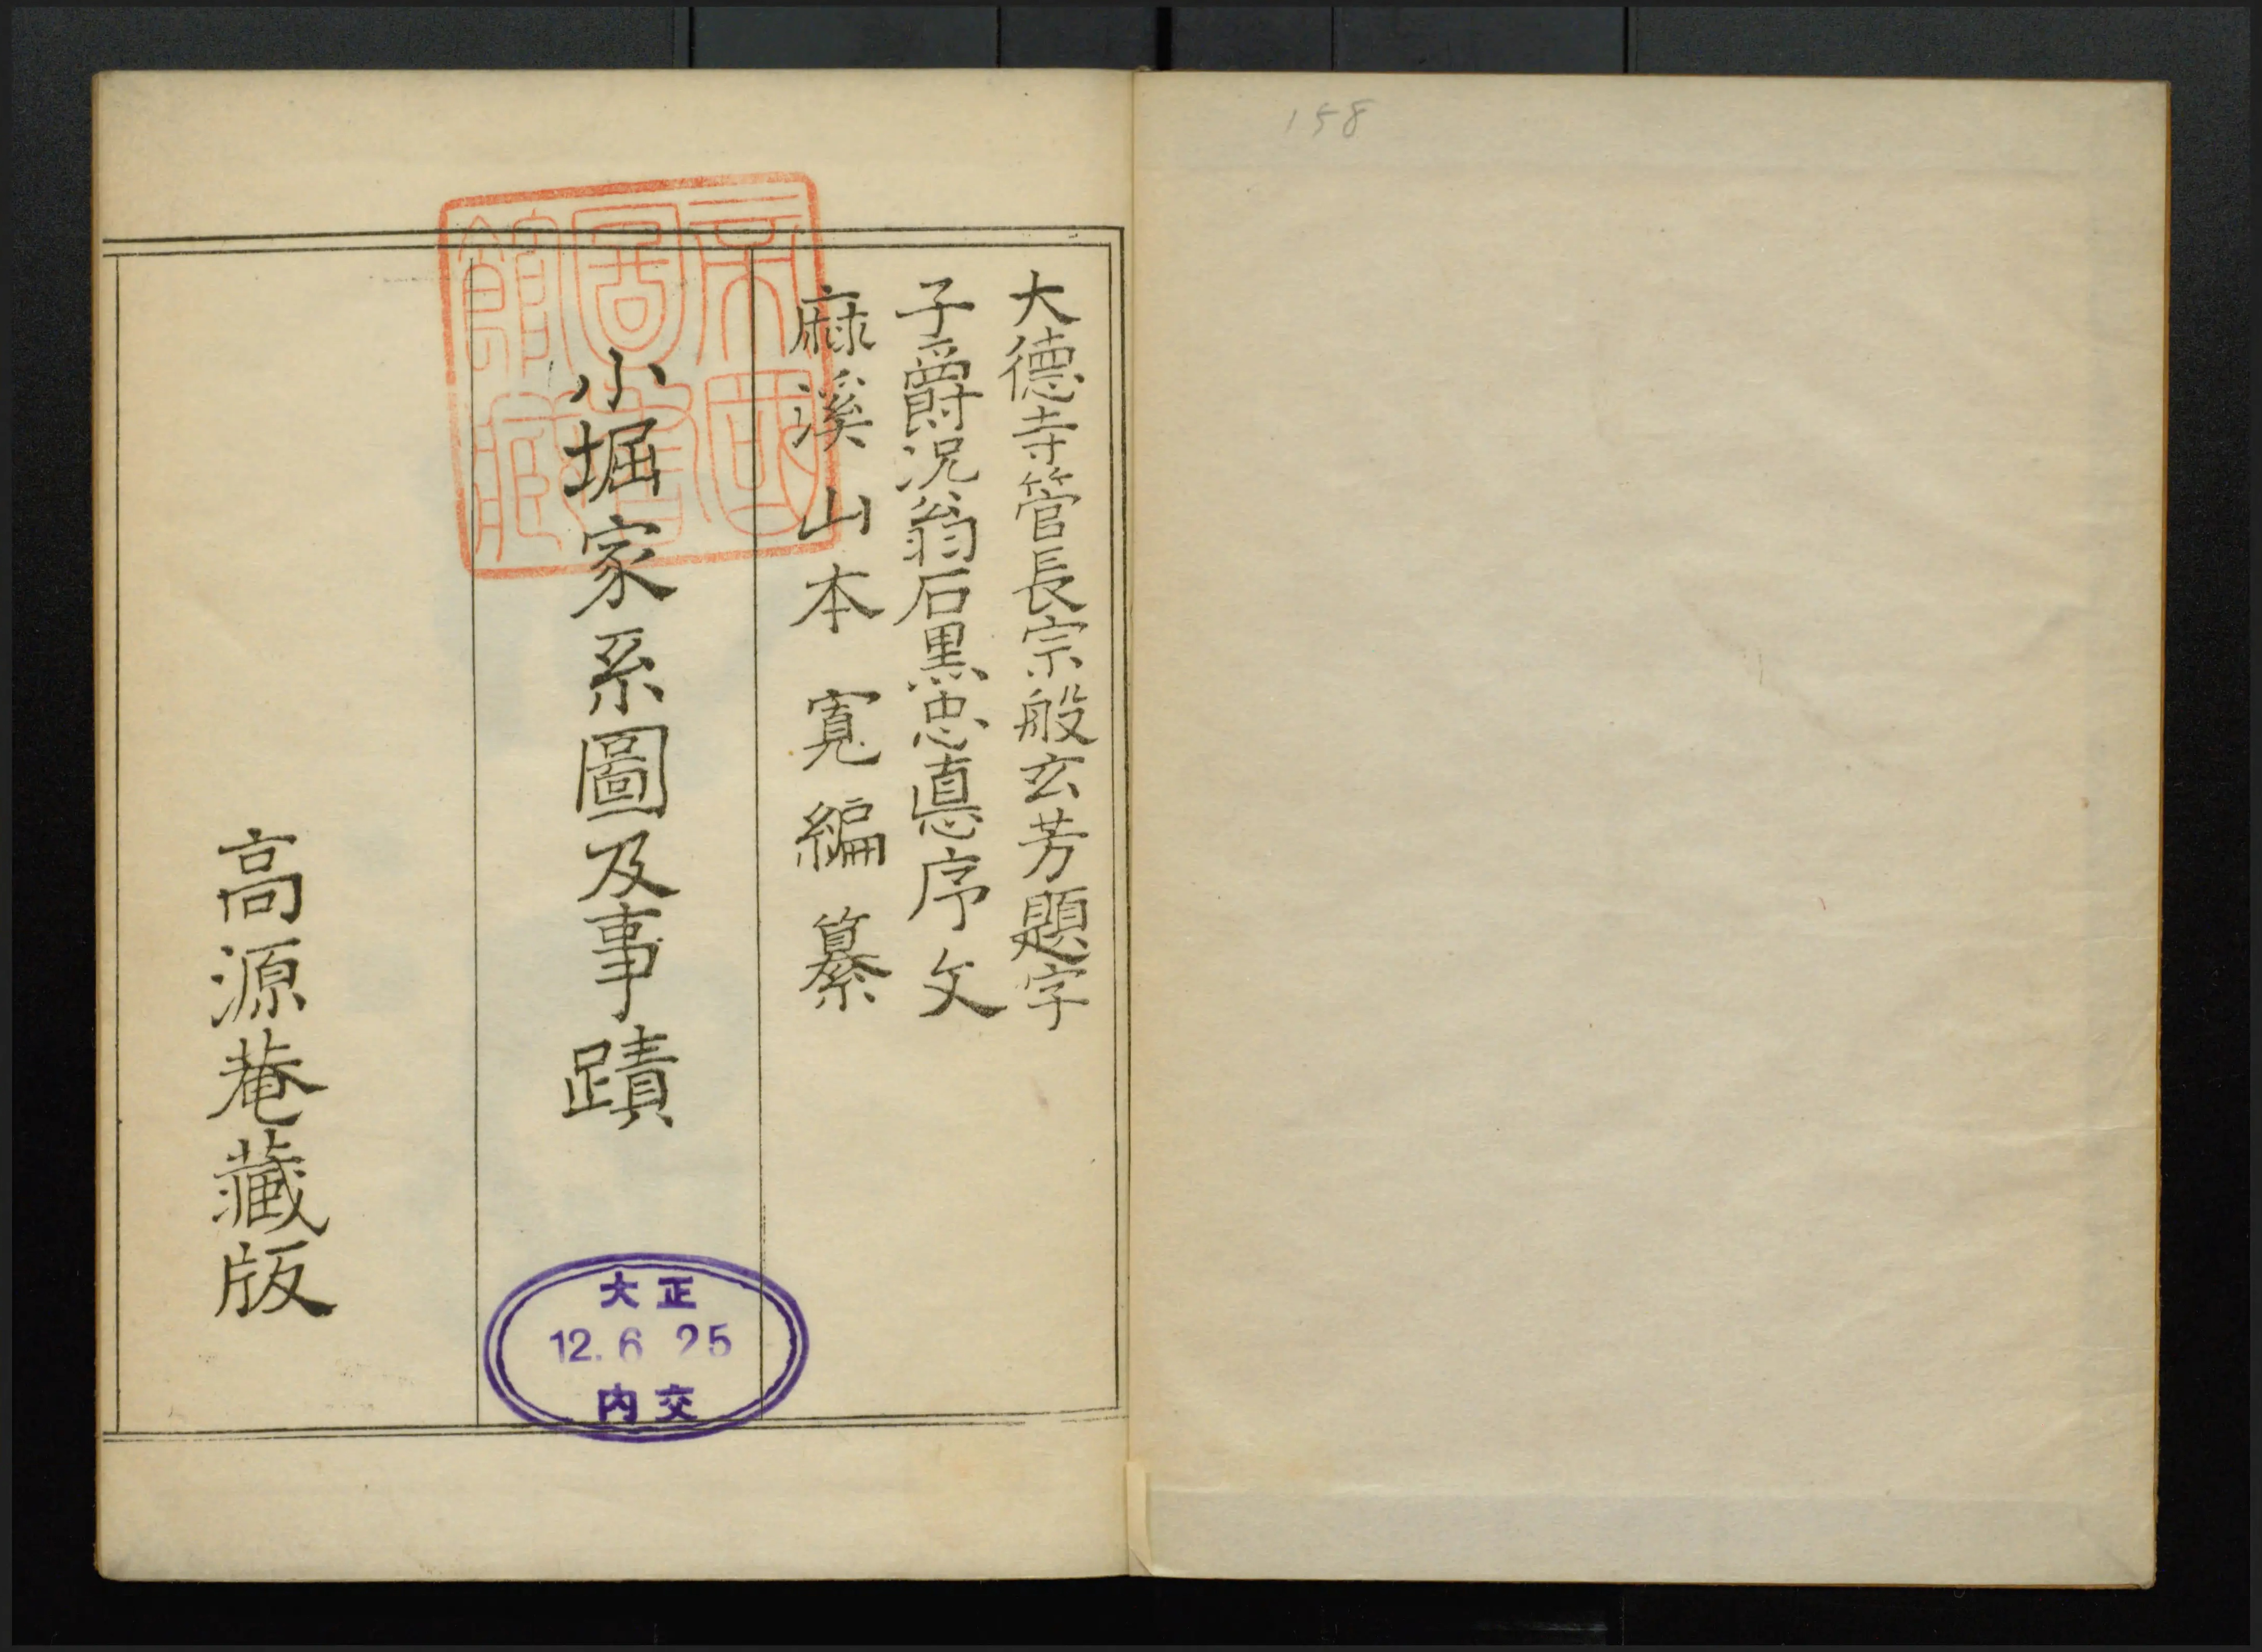 158
大德寺管長宗般玄芳題字
子爵況翁石黒忠悳序文
麻溪山本寬編纂
小堀家系圖及事蹟
高源菴藏版
帝國圖書館藏
大正
12.6 25
内交